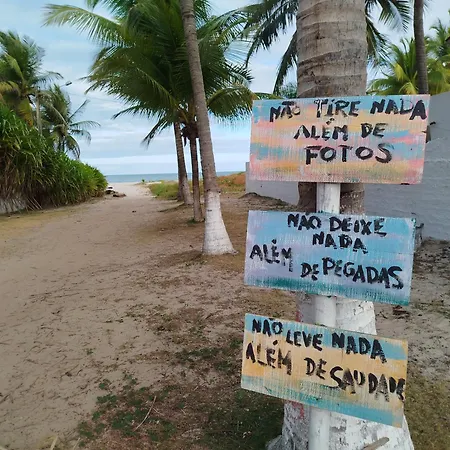 NÃO TIRE NADA
ALÉM DE
FOTOS
NÃO DEIXE
NADA
ALÉM DE PEGADAS
NÃO LEVE NADA
ALÉM DE SAUDADE